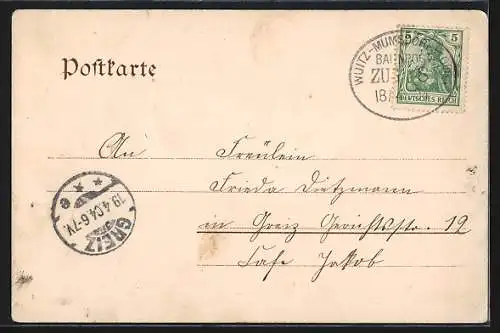 Postkarte
WUITZ-MUMSDORF
BAHNPOST
ZUG
18
5 5
DEUTSCHES REICH
An Fräulein
Frieda Dietzmann
in Greiz Gerichtsstr. 19
Cafe Jakob
GREIZ
19.4.04.6-7V.
* * e